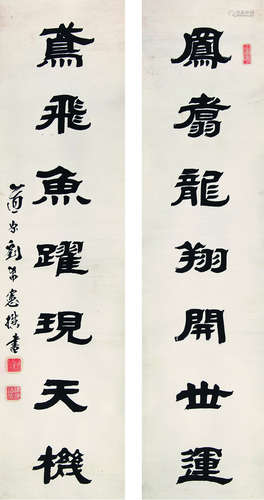 鳳翥龍翔開世運
鳶飛魚躍現天機
道家劉希憲撰書